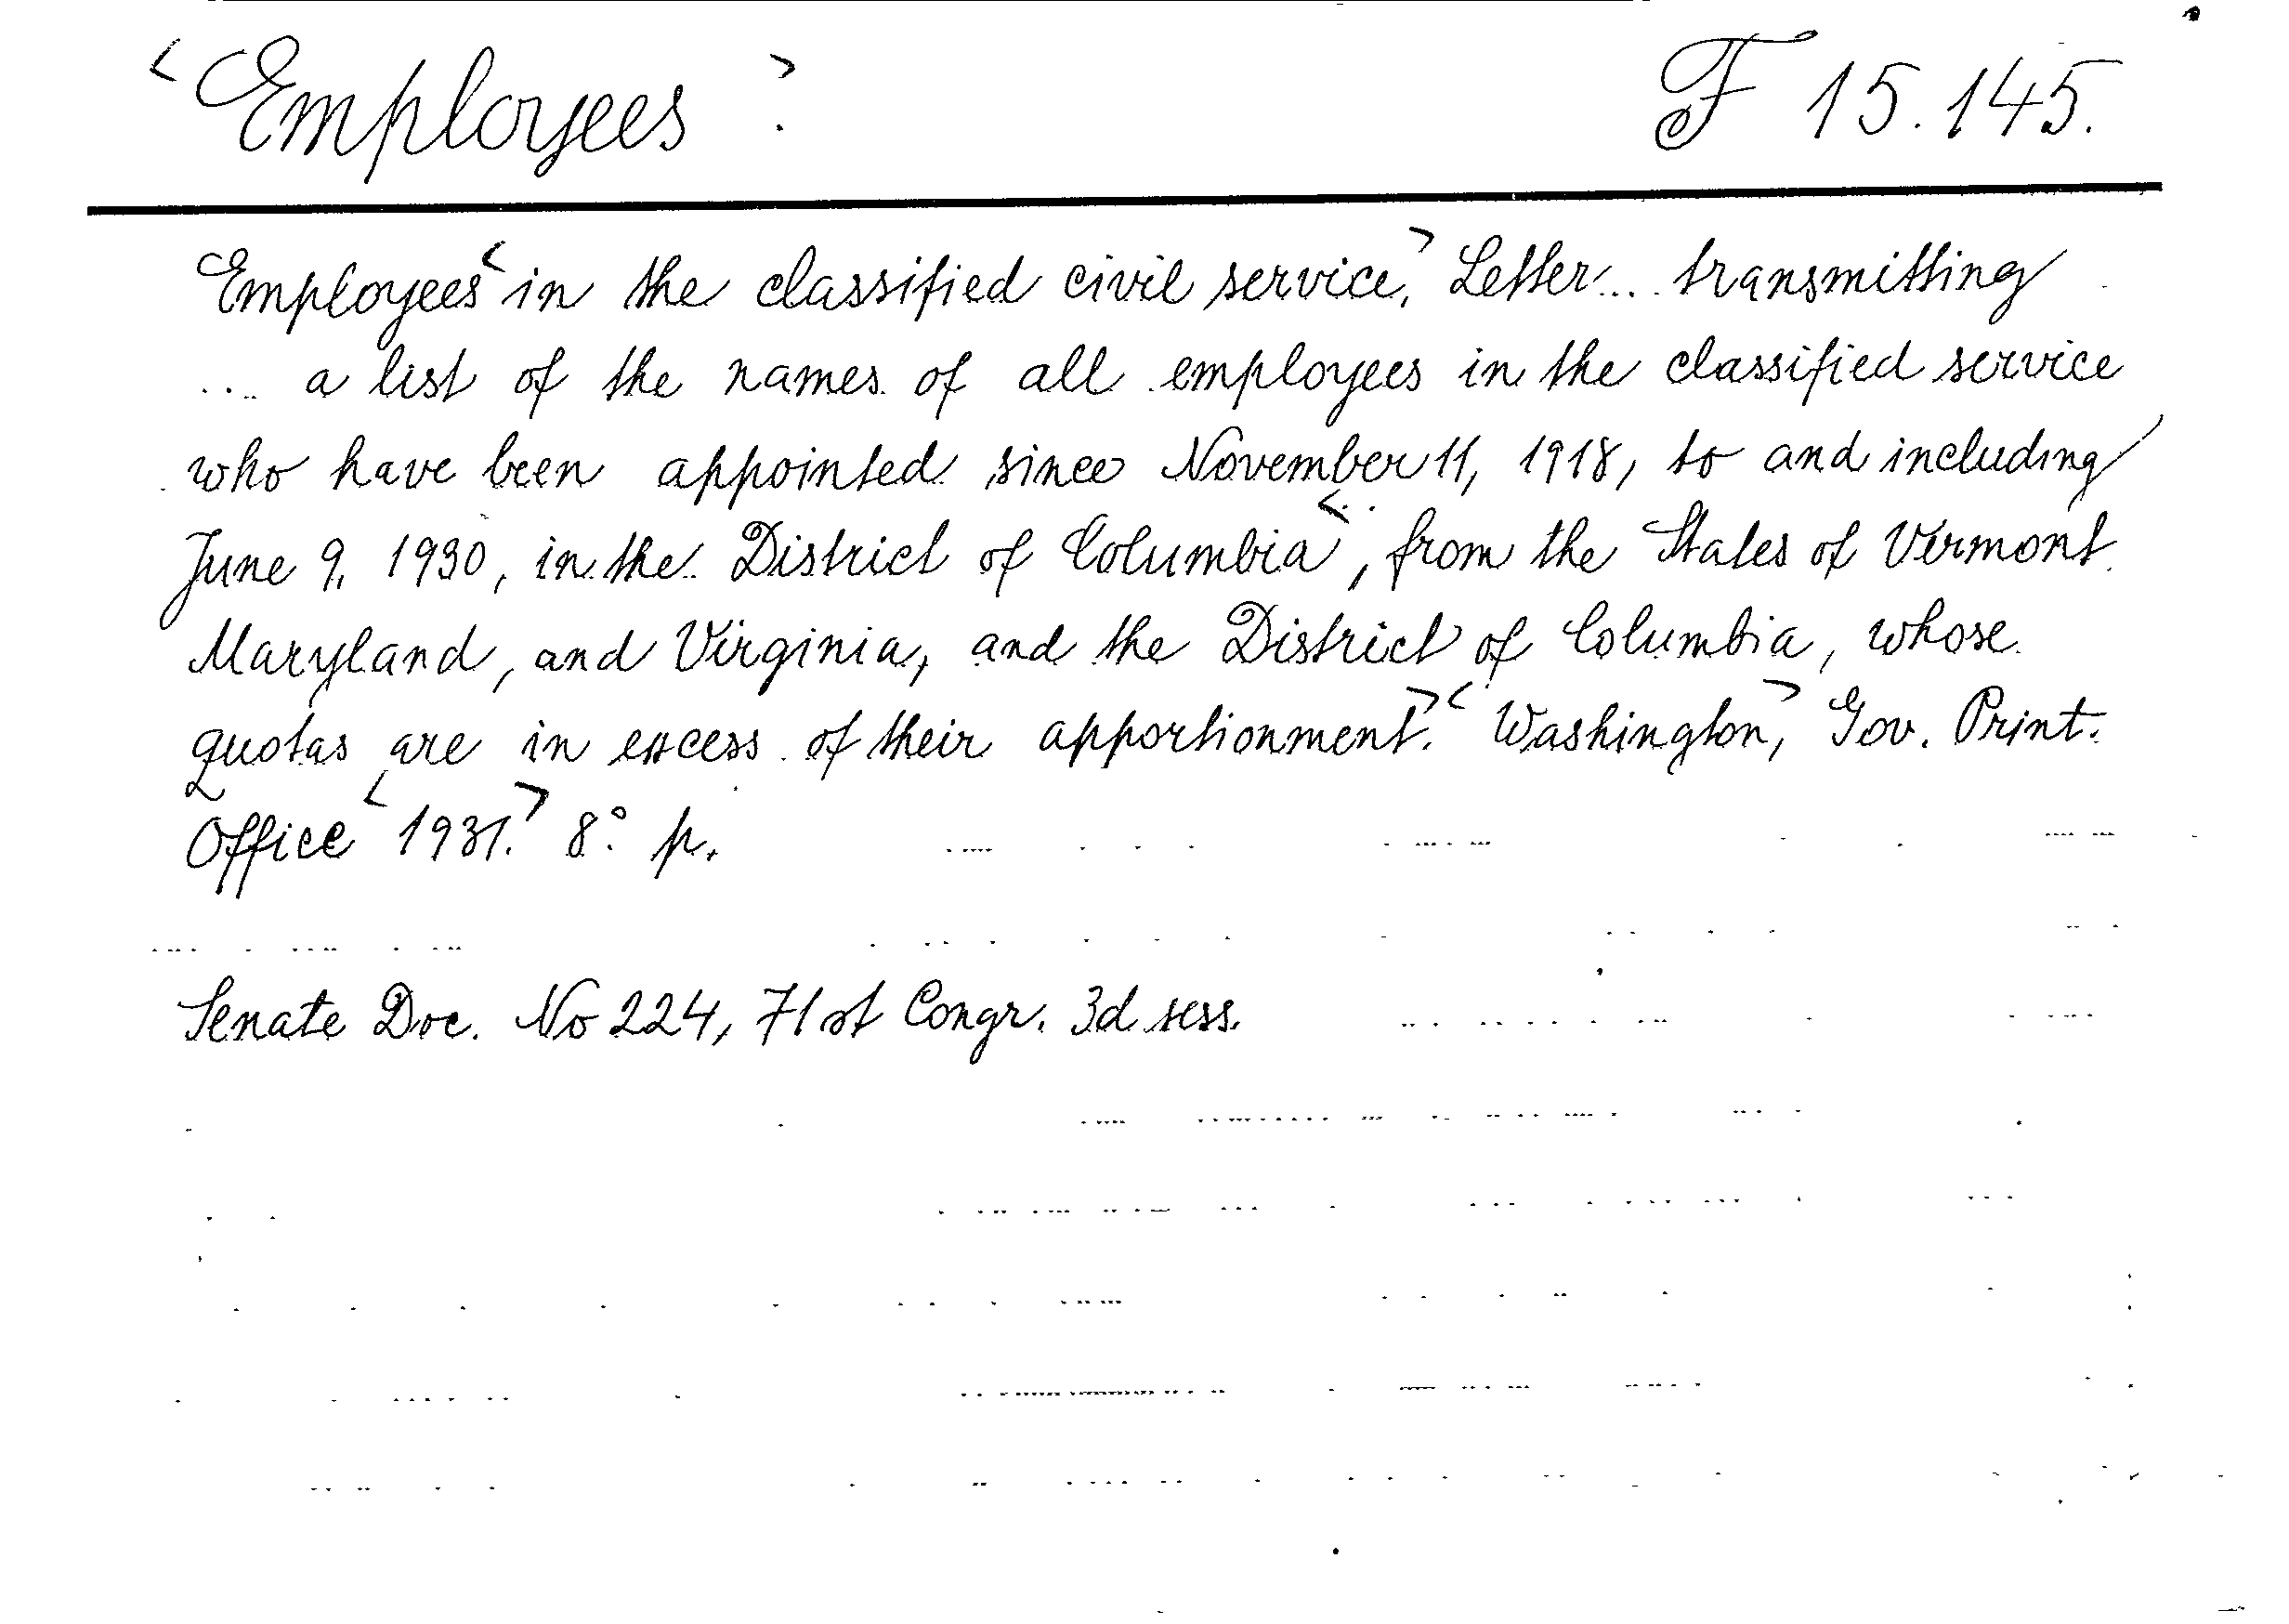 <Employees>. F 15.145.
Employees <in the classified civil service,> Letter... transmitting
... a list of the names of all employees in the classified service
who have been appointed since November 11, 1918, to and including
June 9, 1930, in the District of Columbia<, from the States of Vermont
Maryland, and Virginia, and the District of Columbia, whose
quotas are in excess of their apportionment.> <Washington,> Gov. Print.
Office <1931.> 8° p.
Senate Doc. No 224, 71st Congr. 3d sess.